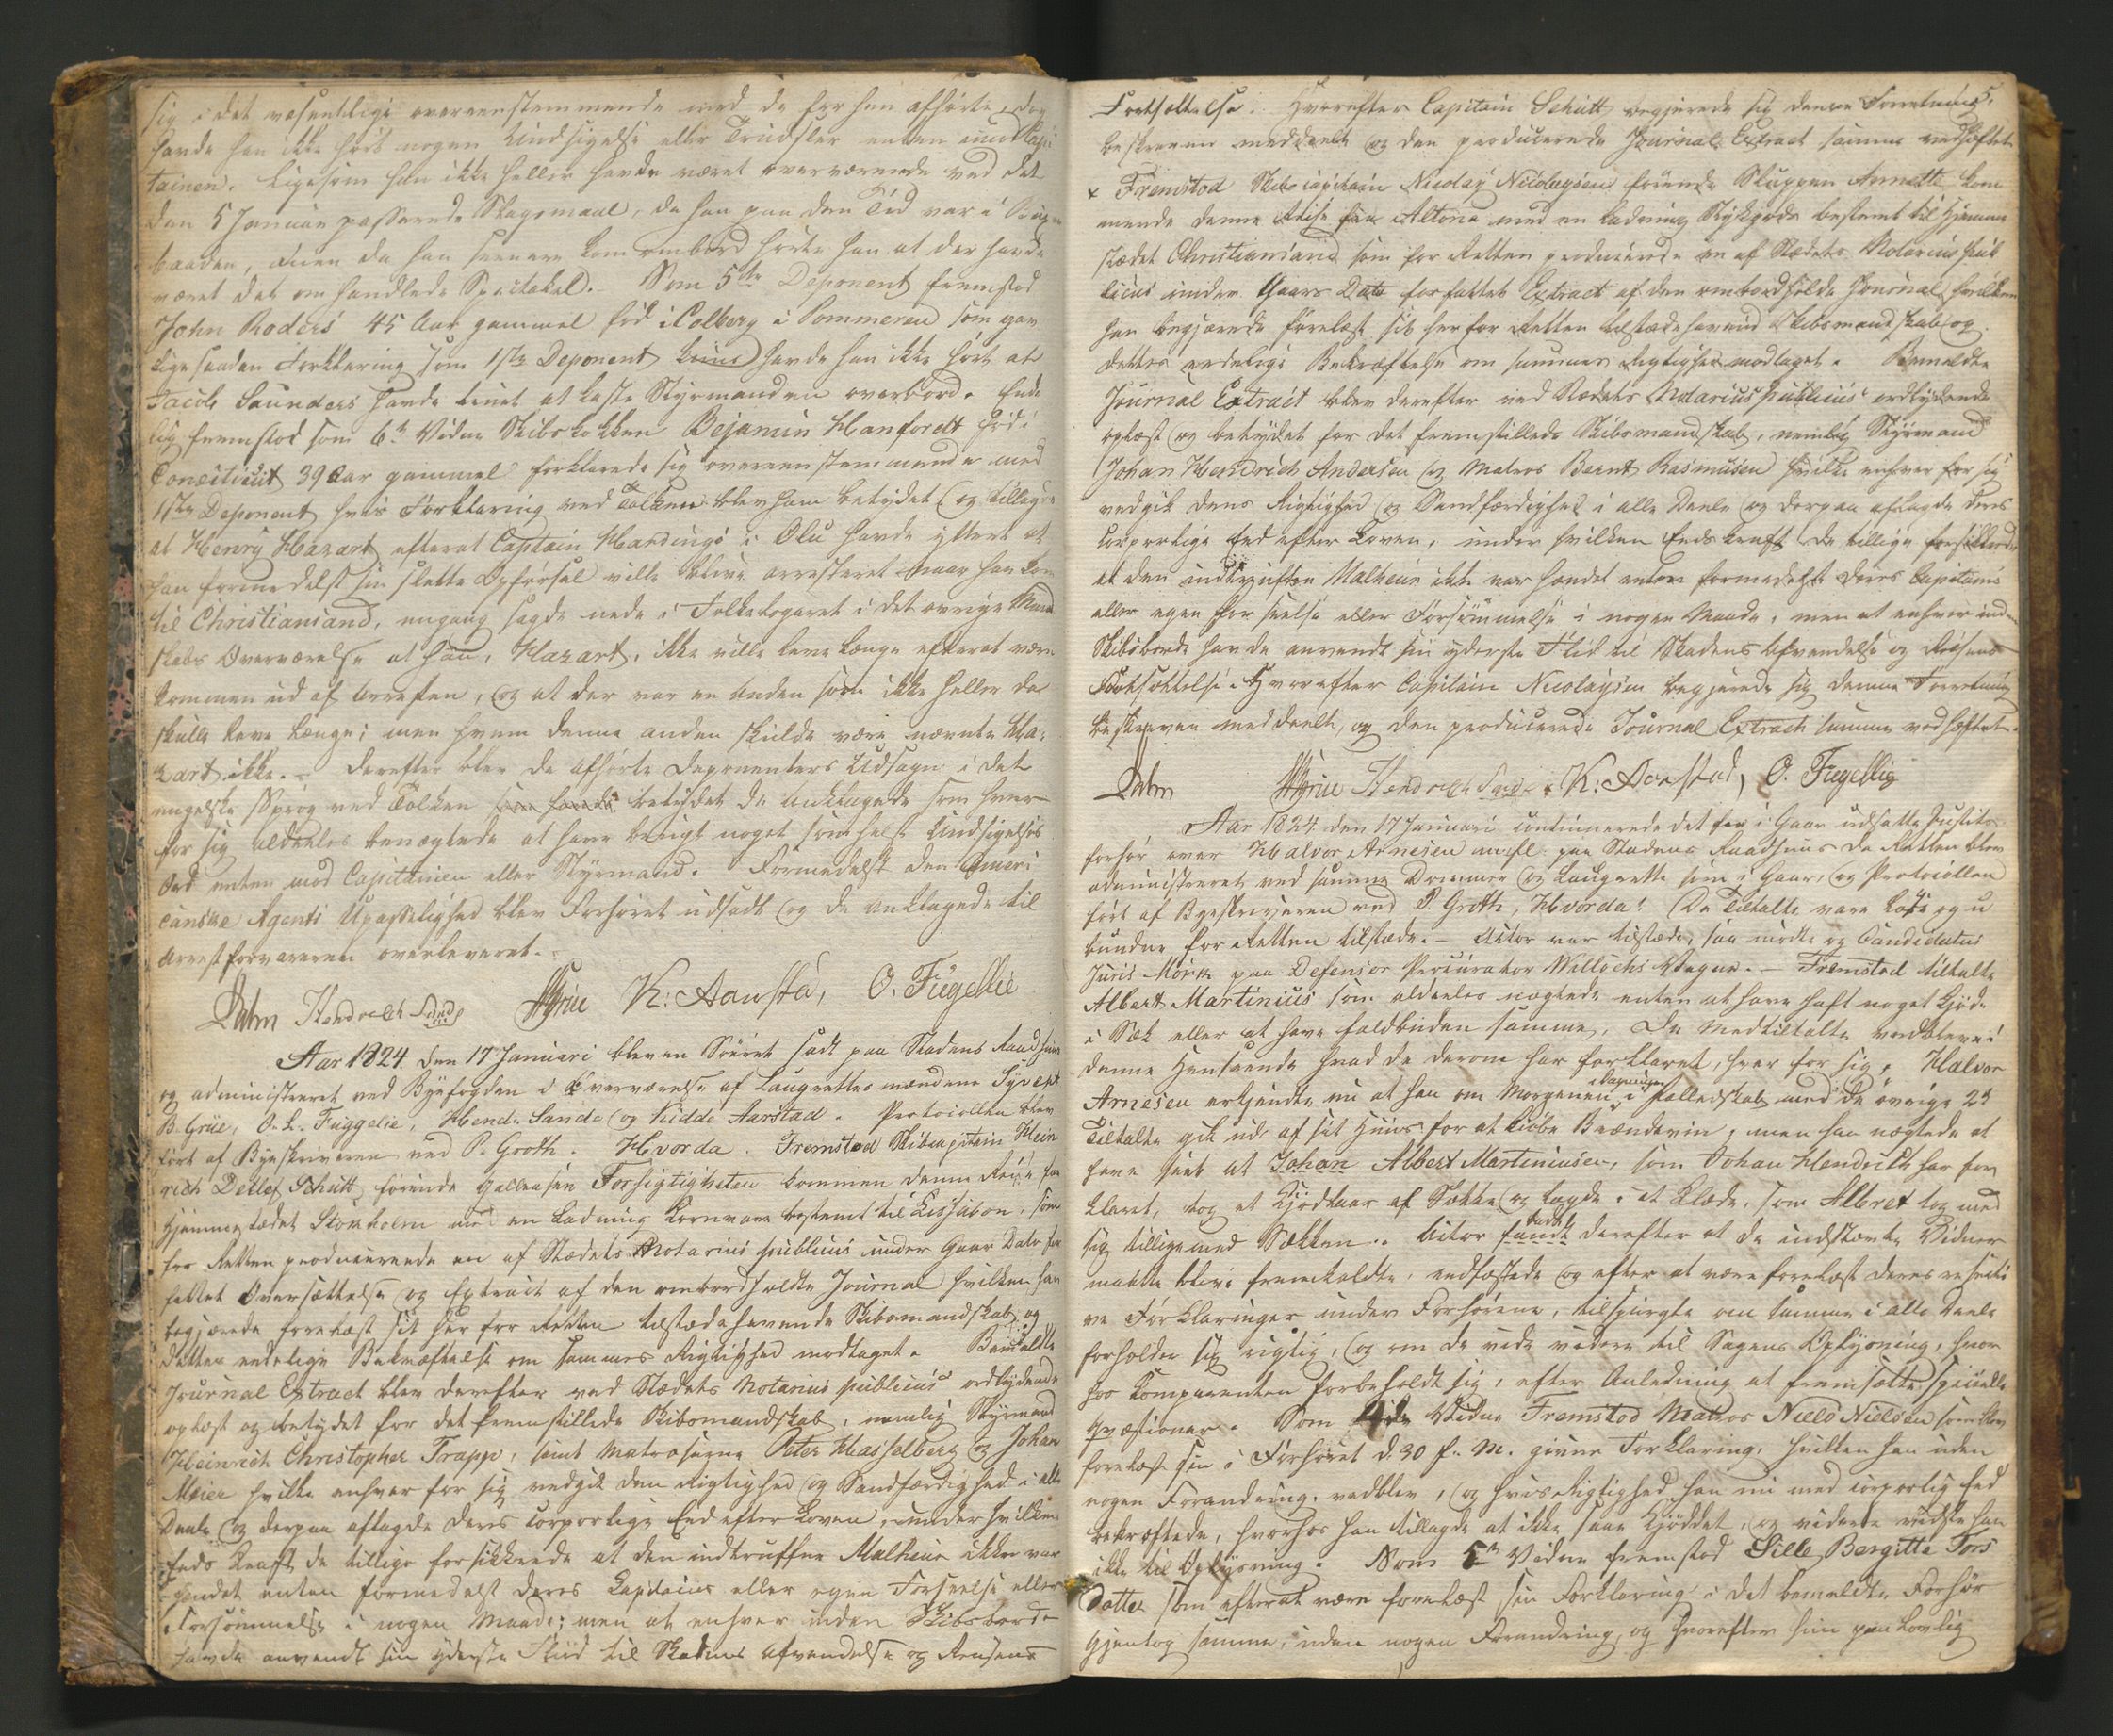 sig i det væsentlige overeenstemmende med de før ham afhørte, dog
havde han ikke hørt nogen Undsigelse eller Trudsler enten imod Capi
tainen. Ligesom han ikke heller havde været overværende ved det
den 5 Januar passerede Slagsmaal, da han paa den Tid var i
baaden, men da han senere kom ombord hørte han at der havde
været det omhandlede Spectakel. Som 5te Deponent fremstod
John Roders 45 Aar gammel fød i Colberg i Pommeren som gav
lige saadan Forklaring som 1ste Deponent kuns havde han ikke hørt at
Jacob Saunders havde truet at kaste Styrmanden overbord. Ende
lig fremstod som 6te Vidne Skibskokken Bejamin Hanfordt fød i
Conecticut 39 Aar gammel forklarede sig overeenstemmende med
1ste Deponent hvis Forklaring ved Tolken blev ham betydet og tillagde
at Henry Hazart efterat Captain Hardings i Olu havde yttret at
han formedelst sin slette Opførsel ville blive arresteret naar han kom
til Christiansand, engang sagde nede i Folkelogaret i det øvrige Mand
skabs Overværelse at han, Hazart, ikke ville leve længe efterat være
kommen ud af Arresten, og at der var en anden som ikke heller da
skulle leve længe; men hvem denne anden skulde være nævnte Ha-
zart ikke. - Derefter blev de afhørte Deponenters Udsagn i det
engelske Sprog ved Tolken som havde betydet de Anklagede som hver
for sig aldeeles benægtede at have brugt noget somhelst Undsigelses
Ord enten mod Capitainen eller Styrmand. Formedelst den Ameri
canske Agents Upasselighed blev Forhøret udsadt og de Anklagede til
Arrestforvareren overleveret. -
Dahm Hendrech Sand Grüe K: Aarsta, O. Fügellie
Aar 1824 den 17 Januari blev en Søeret sadt paa Stadens Raadhuus
og administreret ved Byefogden i Overværelse af Laugrettesmændene Syvert
B. Grüe, O. L. Fuggelie, Hend. Sande og Kidde Aarstad. Protocollen blev
ført af Byeskriveren ved P. Groth. Hvorda. Fremstod Skibscapitain Hein
rich Detlef Schutt førende Galleasen Forsigtigheten kommen denne Reise fra
Hjemmestædet Stokholm med en Ladning Kornvare bestemt til Lissabon, som
for Retten producerede en af Stædets Notarius publicus under Gaars Dato for
fattet Oversættelse og Extract af den ombord holdte Journal hvilken han
begjærede forelæst sit her for Retten tilstædehavende Skibsmandskab og
dettes eedelige Bekræftelse om sammes Rigtighed modtaget. Bemeldte
Journal Extract blev derefter ved Stædets Notarius publicus ordlydende
oplæst og betydet for det fremstillede Skibsmandskab, nemlig Styrmand
Heinrich Christopher Trapp, samt Matroserne Peter Hasselberg og Johan
Meier hvilke enhver for sig vedgik dens Rigtighed og Sandfærdighed i alle
Deele og derpaa aflagde deres corporlige Eed efter Loven, under hvilken
Eeds Kraft de tillige forsikkrede at den indtrufne Malheur ikke var
hendet enten formedelst deres Capitains eller egen Forseelse eller
Forsømmelse i nogen Maade; men at enhver inden Skibsborde
havde anvendt sin yderste Fliid til Skadens Afvendelse og Reisens
5.
Fortsættelse. Hvorefter Capitain Schutt begjærede sig denne Forretning
beskreven meddeelt og den producerede Journal Extract samme vedhæftet.
x Fremstod Skibscapitain Nicolay Nicolaysen førende Sluppen Annette kom
mende denne Reise fra Altona med en Ladning Stykgods bestemt til Hjemme
stædet Christiansand som for Retten producerede en af Stædets Notarius pub
licus under Gaars Dato forfattet Extract af den ombordholdte Journal hvilken
han begjærede forelæst sit her for Retten tilstædehavend Skibsmandskab og
dettes eedelige Bekræftelse om sammes Rigtighed modtaget. Bemeldte
Journal Extract blev derefter ved Stædets Notarius publicus ordlydende
oplæst og betydet for det fremstillede Skibsmandskab, nemlig Styrmand
Johan Hendrich Andersen og Matros Bernt Rasmusen hvilke enhver for sig
vedgik dens Rigtighed og Sandfærdighed i alle Deele og derpaa aflagde deres
corporlige Eed efter Loven, under hvilken Eeds Kraft de tillige forsikkrede
at den indtrufne Malheur ikke var hændet enten formedelst deres Capitains
eller egen Forseelse eller Forsømmelse i nogen Maade, men at enhver inden
Skibsborde havde anvendt sin yderste Flid til Skadens Afvendelse og Reisens
Fortsættelse. Hvorefter Capitain Nicolaysen begjærede sig denne Forretning
beskreven meddeelt, og den producerede Journal Extract samme vedhæftet.
Dahm Grüe Hendrech Sand K: Aarstad, O. Fugellig
Aar 1824 den 17 Januari continuerede det fra i Gaar udsatte Justits
forhør over Halvor Arnesen m: fl: paa Stadens Raadhuus da Retten blev
administreret ved samme Dommer og Laugrette som i Gaar, og Protocollen
ført af Byeskriveren ved P. Groth, Hvorda: De Tiltalte vare løse og u
bundne for Retten tilstæde. - Actor var tilstæde, saa mødte og Candidatus
Juris Mørk paa Defensor Procurator Willochs Vegne. - Fremstod tiltalte
Albert Martinius som aldeeles nægtede enten at have haft noget Kjød
i Sæk eller at have foldbuden samme. De Medtiltalte vedbleve i
denne Henseende hvad de derom har forklaret, hver for sig, Halvor
Arnesen erkjendte nu at han om Morgenen i Følledskab med de øvrige 23
Tiltalte gik ud af sit Huus for at kiøbe Brændeviin, men han nægtede at
have seet at Johan Albert Martiniusen, som Johan Hendrich har for
klaret, tog et Kjødlaar af Sække og lagde i et Klæde, som Albret tog med
sig tilligemed Sækken. Actor fandt bad derefter at de indstævnte Vidner
maatte blive fremkaldte, eedfæstede og efter at være forelæst deres respecti
ve Forklaringer under Forhørene, tilspurgte om samme i alle Deele
forholder sig rigtig, og om de vide videre til Sagens Oplysning, hvor
hos Komparenten forbeholdt sig, efter Anledning at fremsætte specielle
Qvæstioner. Som 4de Vidne Fremstod Matros Niels Nielsen som blev
forelæst sin i Forhøret d. 30 f. M. givne Forklaring, hvilken han uden
nogen Forandring vedblev, og hvis Rigtighed han nu med corporlig Eed
bekræftede, hvorhos han tillagde at ikke saae Kjøddet, og videre vidste han
ikke til Oplysning. Som 5te Vidne fremstod Sille Bergitta Tors
Datter som efterat være forelæst sin Forklaring i det bemeldte Forhør
Gjentog samme, uden nogen Forandring, og hvorefter hun paa lovlig